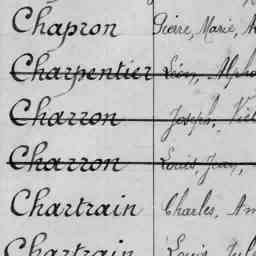 Chapron Pierre, Marie,
Charpentier Léon, Alpho
Charron Joseph, Vict
Charron Louis, Jean,
Chartrain Charles, Am
Chartrain Louis, Jul